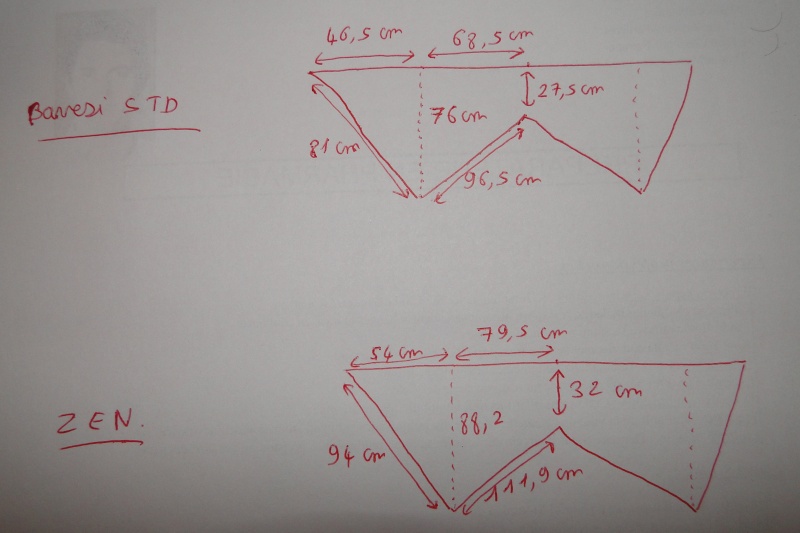 46,5 cm 68,5 cm
Barresi STD
76cm
27,5cm
81 cm
96,5 cm
79,5 cm
54 cm
32 cm
ZEN.
88,2
94 cm
111,9 cm